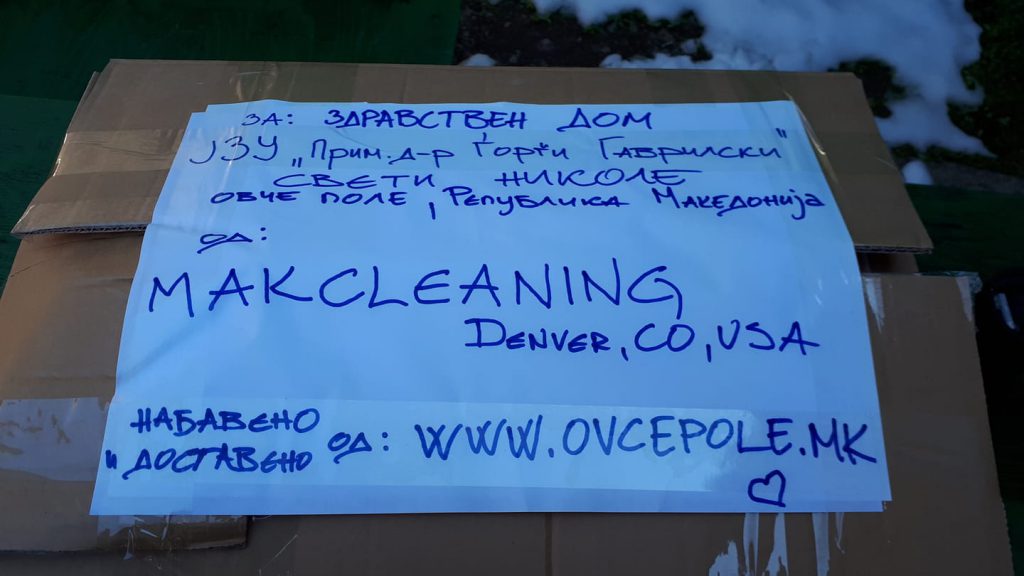 ЗА: ЗДРАВСТВЕН ДОМ
ЈЗУ „Прим. д-р Ѓорѓи Гаврилски“
СВЕТИ НИКОЛЕ
ОВЧЕ ПОЛЕ, РЕПУБЛИКА МАКЕДОНИЈА
ОД:
MAKCLEANING
DENVER, CO, USA
НАБАВЕНО
И ДОСТАВЕНО ОД: WWW.OVCEPOLE.MK